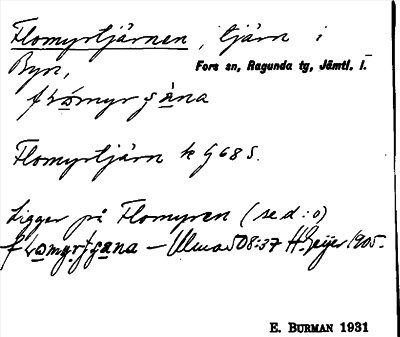 Flomyrtjärnen, tjärn i
Byn, Fors sn, Ragunda tg, Jämtl. l.
Flomyrtjärn k G 68 S.
Ligger på Flomyren (se d:o)
Ulma 508:37 H. Geijer 1905.
E. BURMAN 1931